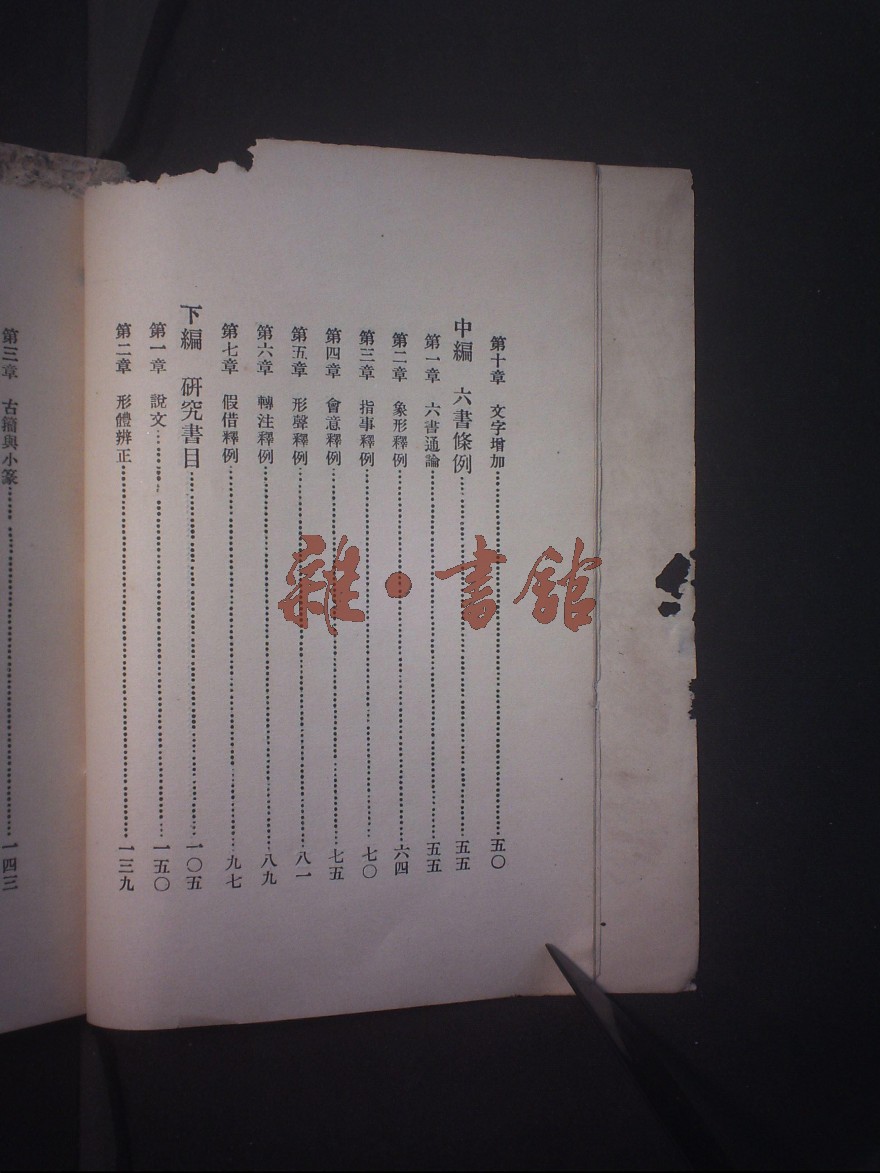 第十章　文字增加…………五〇
中編　六書條例…………五五
第一章　六書通論…………五五
第二章　象形釋例…………六四
第三章　指事釋例…………七〇
第四章　會意釋例…………七五
第五章　形聲釋例…………八一
第六章　轉注釋例…………八九
第七章　假借釋例…………九七
下編　研究書目…………一〇五
第一章　說文…………一五〇
第二章　形體辨正…………一三九
第三章　古籀與小篆…………一四三
雜·書館